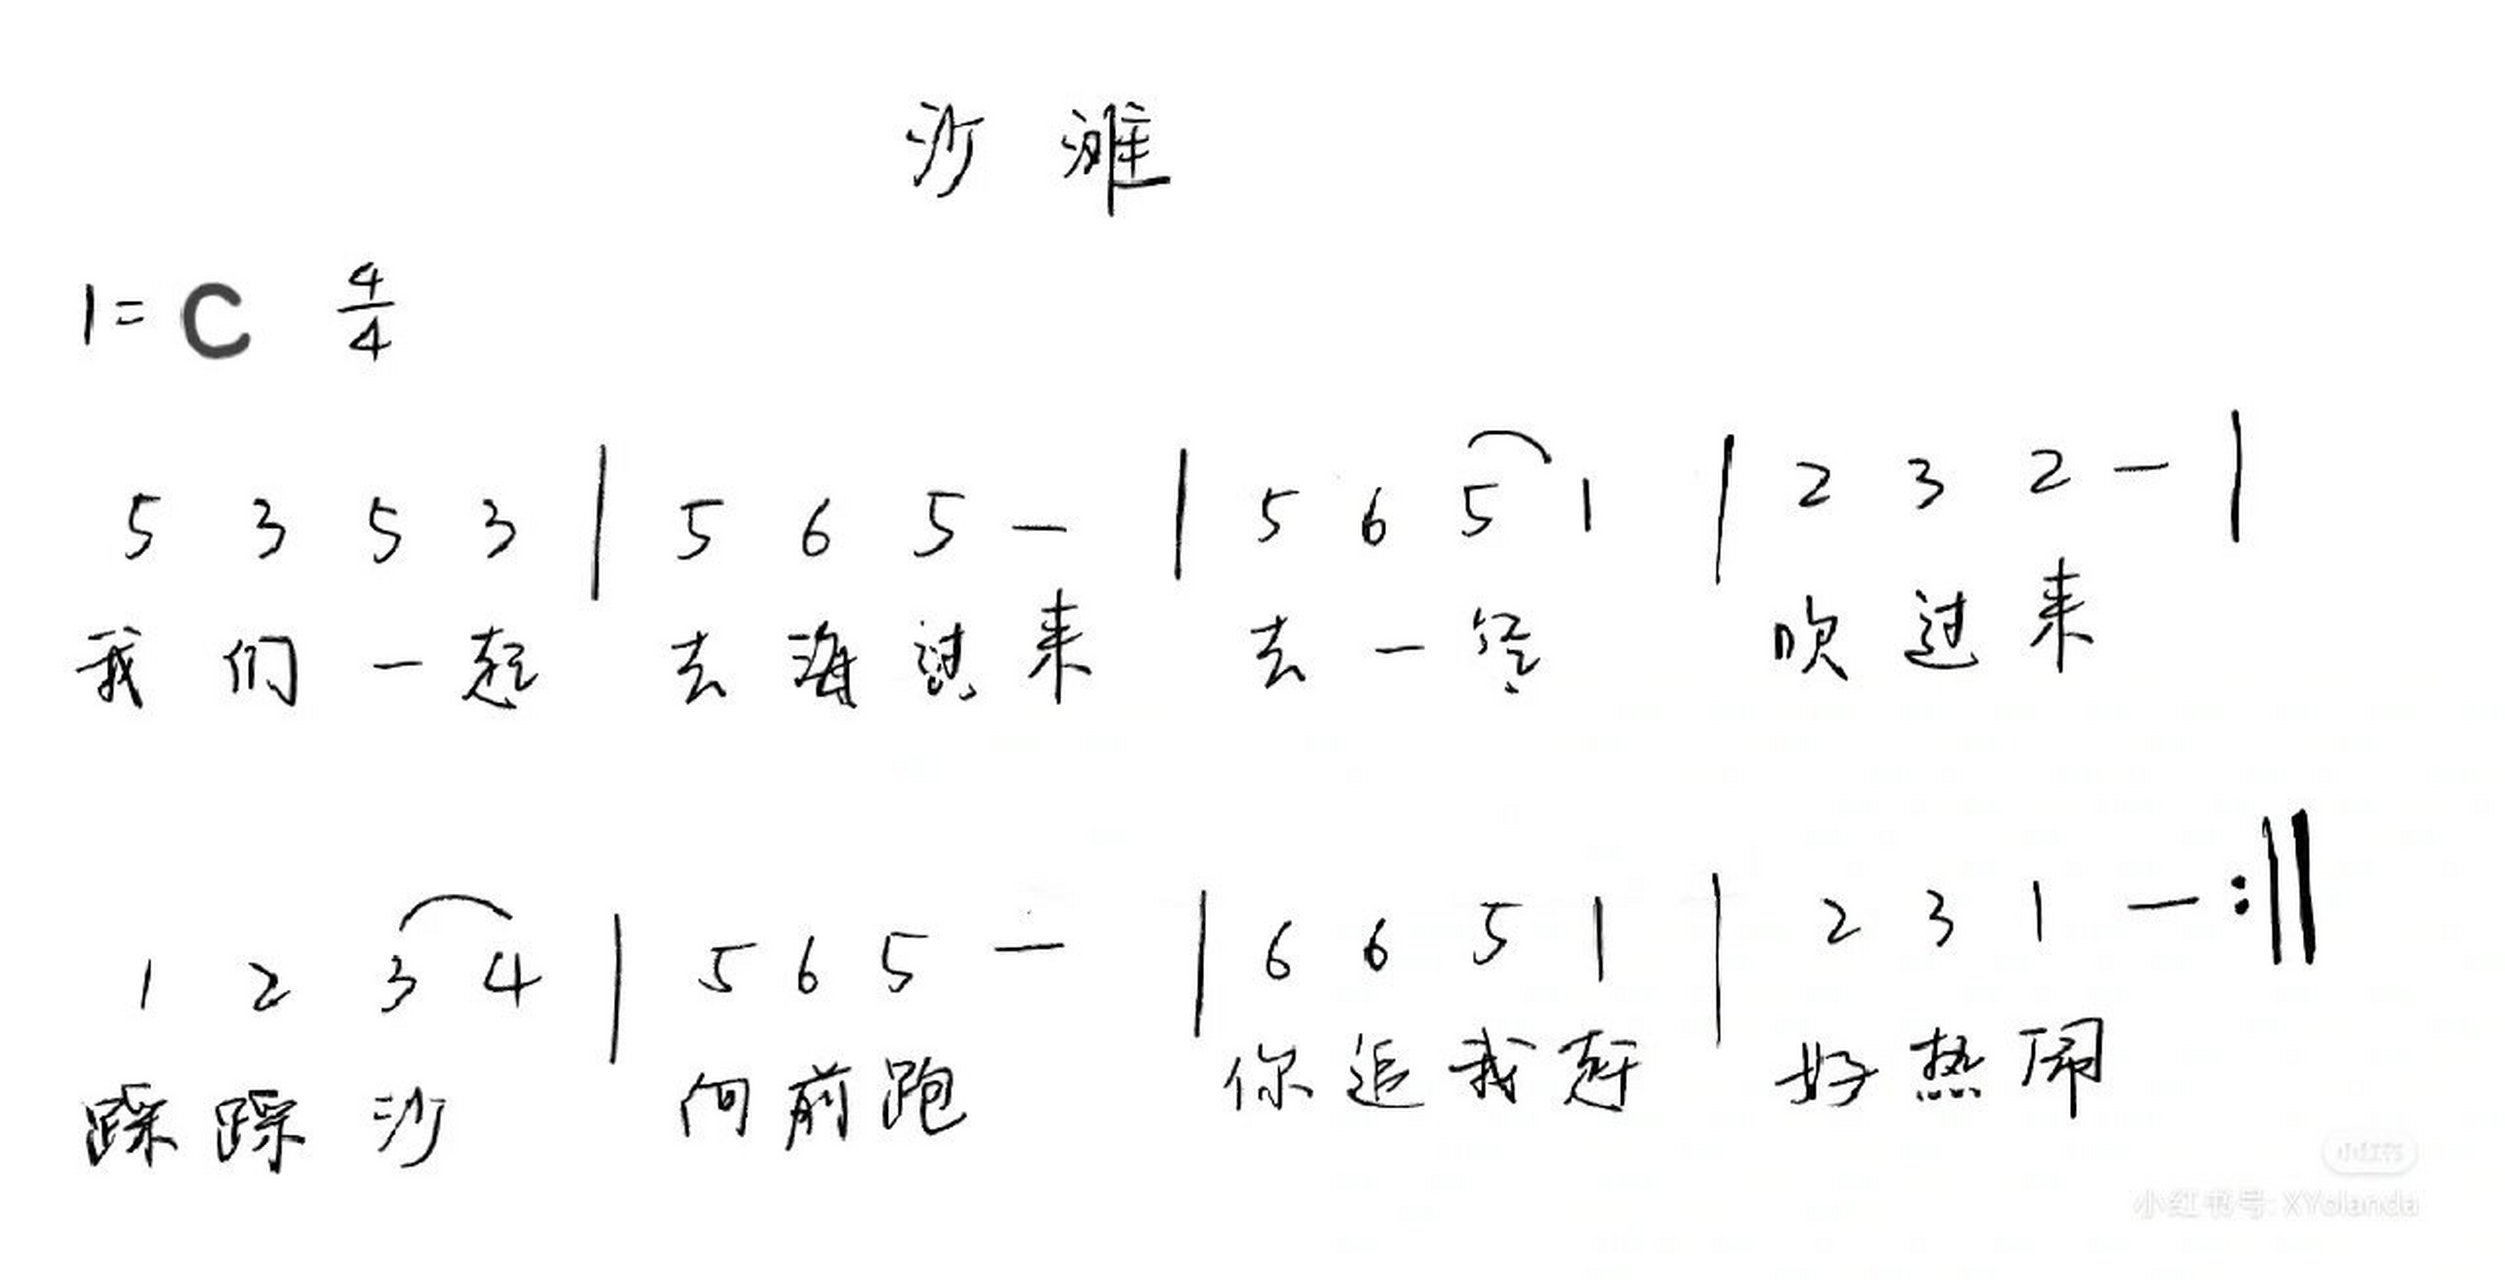 沙滩
1=C 4/4
5 3 5 3 | 5 6 5 — | 5 6 5 1 | 2 3 2 — |
我们一起 去海边来 去一 吹过来
1 2 3 4 | 5 6 5 — | 6 6 5 1 | 2 3 1 — :||
踩踩沙 向前跑 你追我赶 好热闹
小红书
小红书号: XYolanda